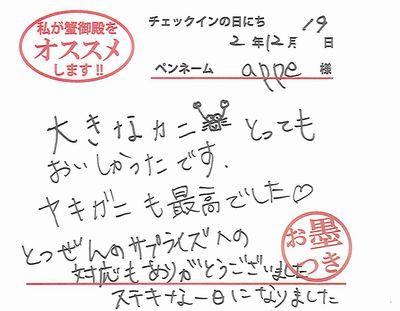 私が蟹御殿を
オススメ
します!!
チェックインの日にち
2年12月19日
ペンネーム appe 様
大きなカニ とっても
おいしかったです.
ヤキガニも最高でした♡
とつぜんのサプライズへの
対応もありがとうございました
ステキな一日になりました
お墨
つき